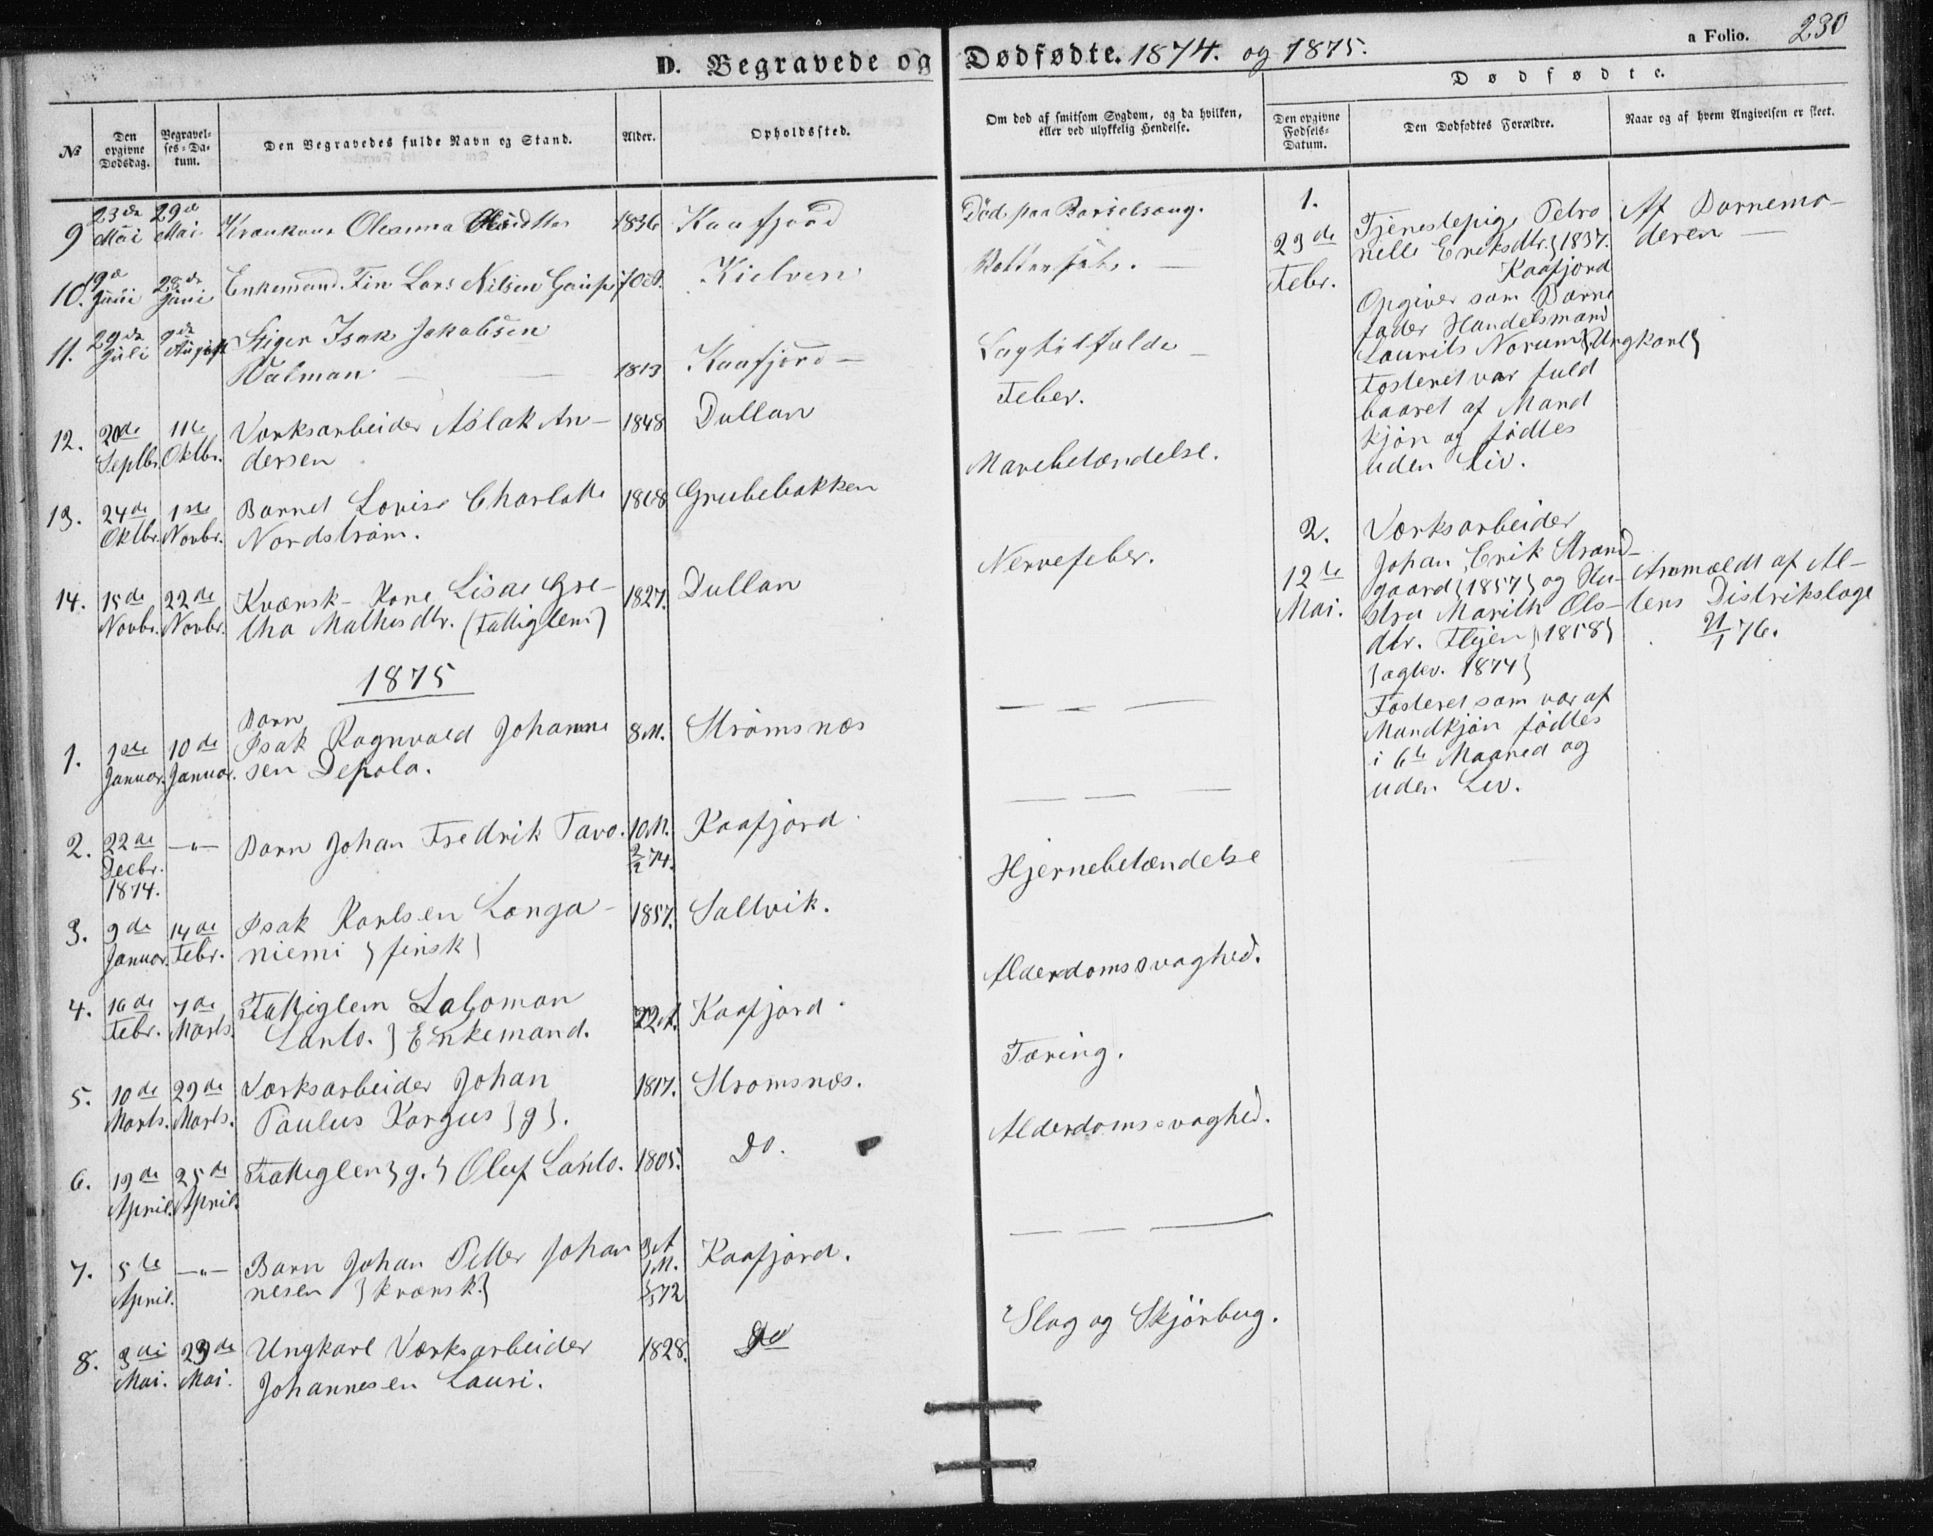 a Folio. 230
D. Begravede og Dødfødte. 1874. og 1875.
Dødfødte.
No
Den opgivne Dødsdag.
Begravelses-Datum.
Den Begravedes fulde Navn og Stand.
Alder.
Opholdssted.
Om død af smitsom Sygdom, og da hvilken, eller ved ulykkelig Hendelse.
Den opgivne Fødsels-Datum.
Den Dødfødtes Forældre.
Naar og af hvem Angivelsen er skeet.
9 23de Mai 29de Mai Oleanna 1836 Kaafjord
Død paa Barselseng.
10. 19de Juni 28de Juni Enkemand Fin Lars Nilsen Gaup Kielven
11. 29de Juli 9de August Stiger Isak Jakobsen
Walman 1813 Kaafjord
12. 20de Septbr. 11te Oktbr. Værksarbeider Aslak An-
dersen 1848 Dullan
Feber.
13. 24de Oktbr. 1ste Novbr. Barnet Lovise Charlotte
Nordstrøm. 1868 Grubebakken
Mavebetændelse.
14. 15de Novbr. 22de Novbr. Kvænsk- Kone Lisa Gre-
tha Mathisdtr. (Fattiglem) 1827. Dullan
Nervefeber.
1875
1. 1ste Januar. 10de Januar. Barn
Isak Ragnvald Johanne
sen Depola. 8 M. Strømsnæs
2. 22de Decbr. 1874. —„— Barn Johan Fredrik Tavo. 10 M. Kaafjord.
3. 9de Januar. 14de Febr. Isak Karlsen Langa-
niemi } finsk } 1857. Saltvik.
Hjernebetændelse
4. 16de Febr. 7de Marts. Fattiglem Salomon
Lanto. } Enkemand. Kaafjord.
Alderdomssvaghed.
5. 10de Marts. 29de Marts. Værksarbeider Johan
Paulus Kargus } g }. 1817. Strømsnæs.
Tæring.
6. 19de April. 25de April. Fattiglem } g. } Oluf Lanto. 1805. Do.
Alderdomssvaghed.
7. 5te April. —„— Barn Johan Petter Johan
nesen } kvænsk. } 3 A 1 M. Kaafjord.
8. 3die Mai. 23de Mai. Ungkarl Værksarbeider
Johannesen Lauri. 1828. Do
Slag og Skjørbug.
1.
23de Febr.
Tjenestepige Petro
nelle Eriksdtr. } 1837.
Kaafjord
Opgiver som Barne
fader Handelsmand
Laurits Norum } Ungkarl }
Fosteret var fuld
baaret af Mand
kjøn og fødtes
uden Liv.
Af Barnemo-
deren
2.
12te Mai.
Værksarbeider
Johan Erik Strand-
gaard } 1857 } og Hu-
stru Marith Ols-
dtr. Flyen } 1858 }
} ægtev. 1874 }
Fosteret som var af
Mandkjøn fødtes
i 6te Maaned og
uden Liv.
Anmældt af Al-
tens Distrikslæge
21/1 76.